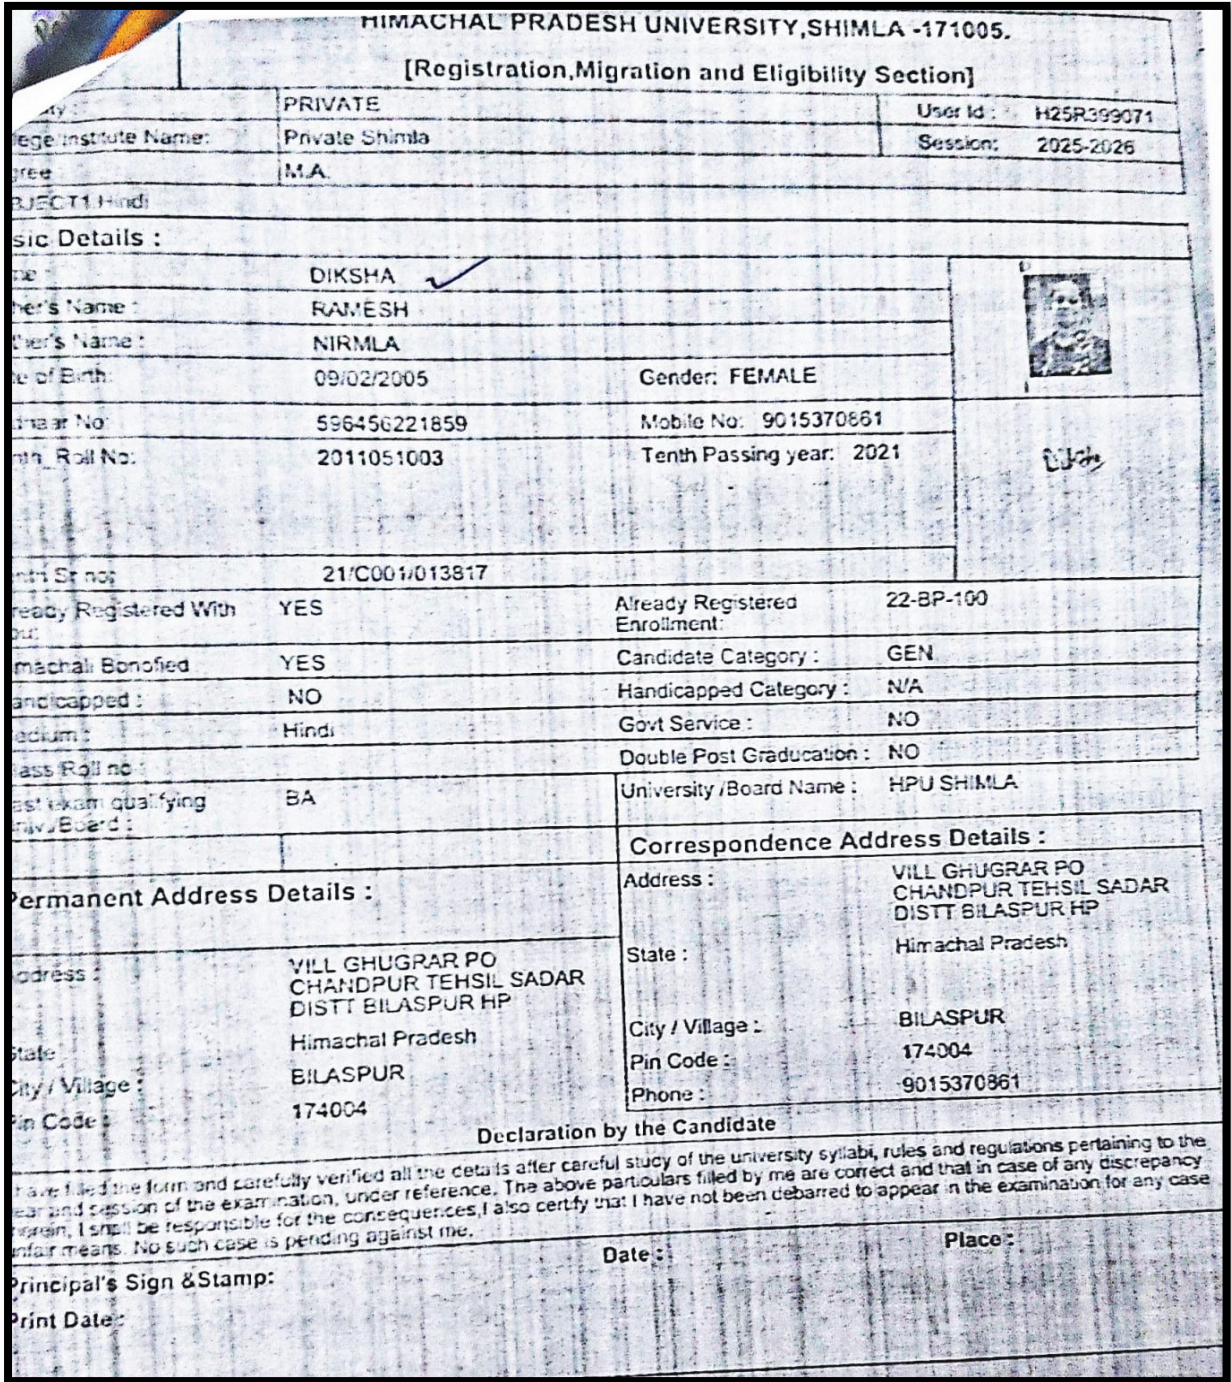 HIMACHAL PRADESH UNIVERSITY,SHIMLA -171005.
[Registration,Migration and Eligibility Section]
PRIVATE User Id : H25R399071
ege/Institute Name: Private Shimla Session: 2025-2026
gree M.A.
BJECT1.Hindi
sic Details :
me DIKSHA
her's Name : RAMESH
ther's Name : NIRMLA
te of Birth: 09/02/2005 Gender: FEMALE
dhaar No: 596456221859 Mobile No: 9015370861
nth_Roll No: 2011051003 Tenth Passing year: 2021
enth Sr no: 21/C001/013817
ready Registered With YES Already Registered Enrollment: 22-BP-100
machali Bonofied YES Candidate Category : GEN
andicapped : NO Handicapped Category : N/A
edium : Hindi Govt Service : NO
lass Roll no : Double Post Graducation : NO
ast exam qualifying BA University /Board Name : HPU SHIMLA
niv./Board :
Correspondence Address Details :
Permanent Address Details :
Address : VILL GHUGRAR PO
CHANDPUR TEHSIL SADAR
DISTT BILASPUR HP
State : Himachal Pradesh
City / Village : BILASPUR
Pin Code : 174004
Phone : 9015370861
ddress : VILL GHUGRAR PO
CHANDPUR TEHSIL SADAR
DISTT BILASPUR HP
State Himachal Pradesh
City / Village : BILASPUR
Pin Code : 174004
Declaration by the Candidate
have filled the form and carefully verified all the details after careful study of the university syllabi, rules and regulations pertaining to the
ear and session of the examination, under reference. The above particulars filled by me are correct and that in case of any discrepancy
herein, I shall be responsible for the consequences,I also certify that I have not been debarred to appear in the examination for any case
nfair means. No such case is pending against me.
Date : Place :
Principal's Sign &Stamp:
Print Date :